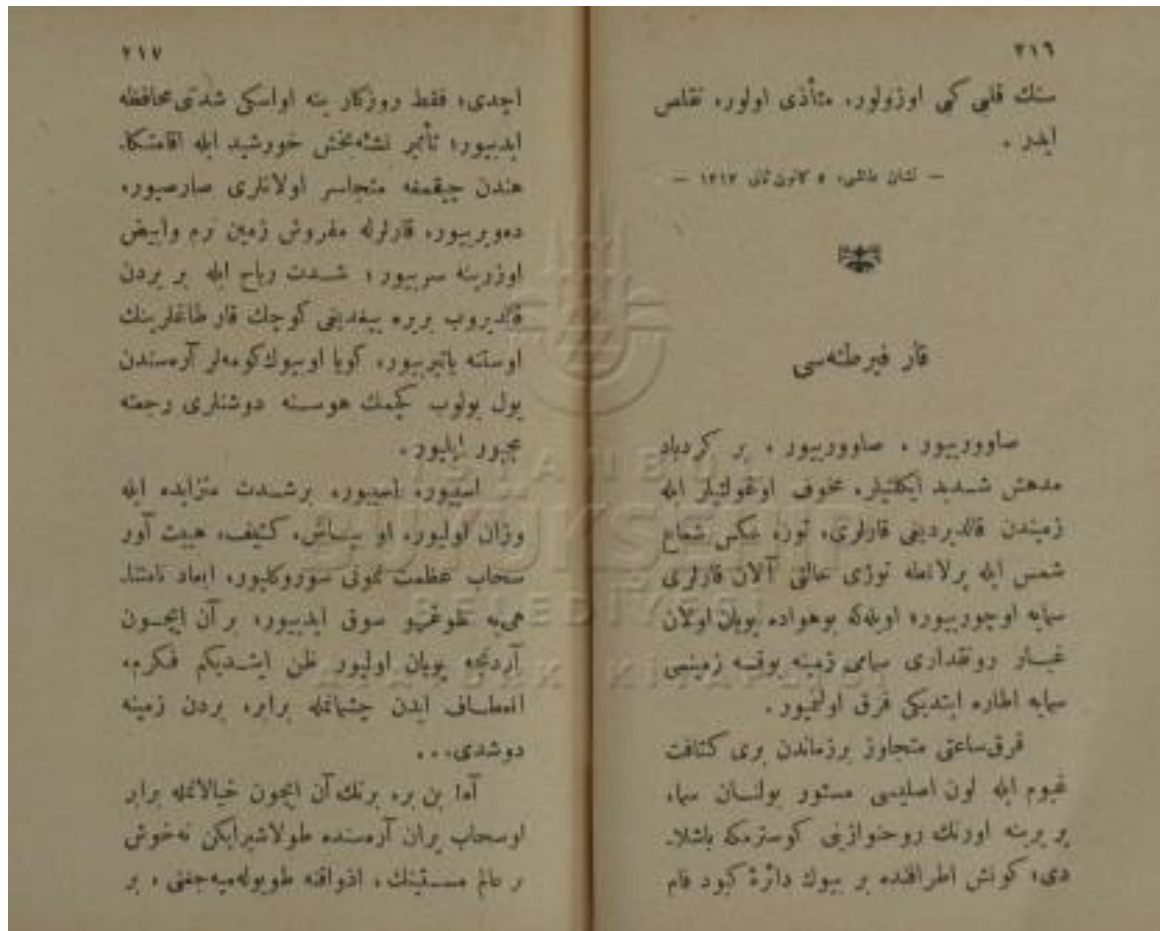 ٢١٦
سنك قلبی کبی اوزولور، متأذی اولور، تقلص
ایدر .
— نشان طاشی، ٥ کانون ثانی ١٣١٣ —
قار فیرطنه‌سی
صاووریبور ، صاووریبور ، بر کردباد
مدهش شدید ایکلتیلر، مخوف اوغولتیلر ایله
زمیندن قالدیردیغی قارلری، نوره عکس شعاع
شمس ایله برلانطه توزی حالنی آلان قارلری
سمایه اوچوریبور، اویله‌که بوهواده پویان اولان
غبار رونقداری سمامی زمینه یوقسه زمینمی
سمایه اطاره ایتدیکی فرق اولنمیور .
قرق ساعتی متجاوز برزماندن بری کثافت
غیوم ایله لون اصلیسی مستور بولنان سما،
یر یرینه اورنك روحنوازینی کوسترمکه باشلا-
دی؛ کونش اطرافنده بر بیوك دائرهٔ کبود فام
٢١٧
آچدی؛ فقط روزکار ینه اواسکی شدتنی محافظه
ایدییور؛ تأثیر نشئه‌بخش خورشید ایله اقامتکا-
هندن چیقمغه متجاسر اولانلری صارصیور،
ده‌ویرییور، قارلرله مفروش زمین نرم وابیض
اوزرینه سرییور ؛ شدت ریاح ایله بر یردن
قالدیروب بریره ییغدیغی کوچك قار طاغلرینك
اوستنه یاتیرییور، کویا اوبیوك کومه‌لر آره‌سندن
یول بولوب کچمك هوسنه دوشنلری رجعته
مجبور ایلیور .
اسییور، اسییور، برشدت متزایده ایله
وزان اولیور، او کثیف، هیبت آور
سحاب عظمت نمونی سوروکلیور، ابعاد نامتنا-
هی‌یه طوغرو سوق ایدییور، بر آن ایچون
آردنجه پویان اولیور ظن ایتدیکم فکرم،
انعطاف ایدن چشمانمله برابر، بردن زمینه
دوشدی...
آه! بن بر، برتك آن ایچون خیالاتمله برابر
اوسحاب پران آره‌سنده طولاشیرایکن نه‌خوش
بر عالم ، اذواقنه طویوله‌میه‌جغنی ، بر